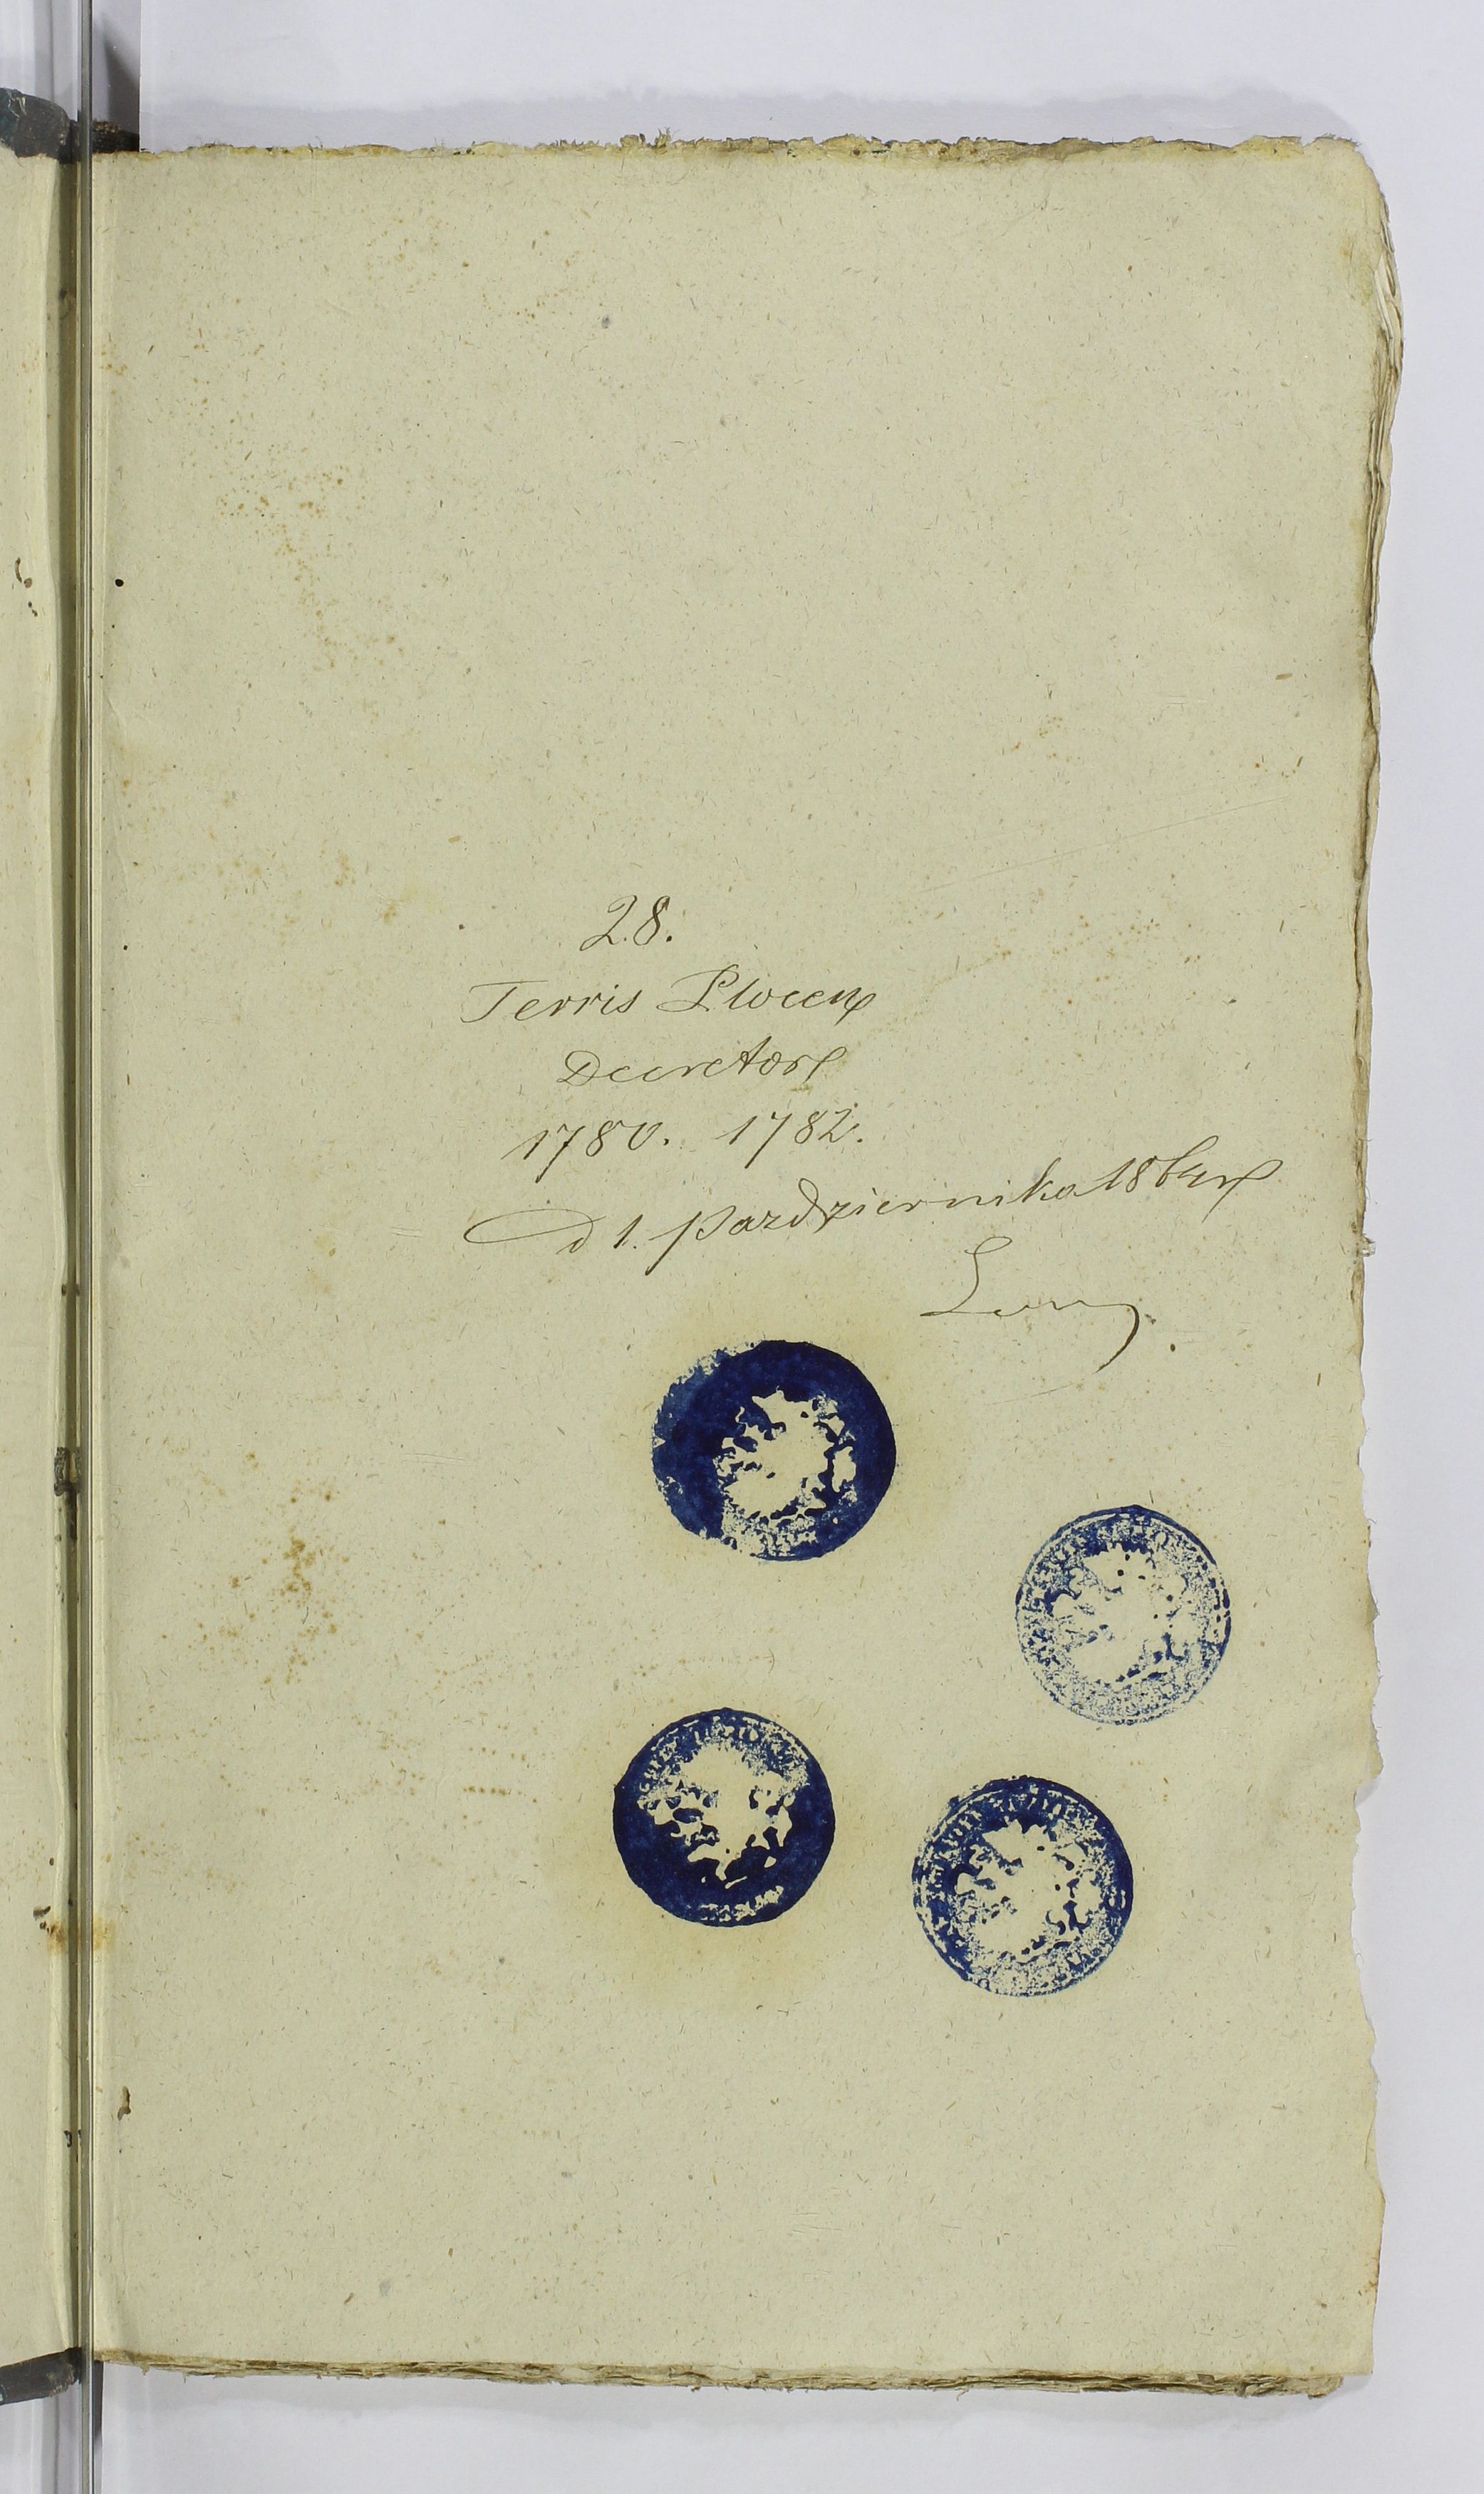 28.
Terris Plocen
Decretor
1780. 1782.
d 1. Pazdziernika 1864 r